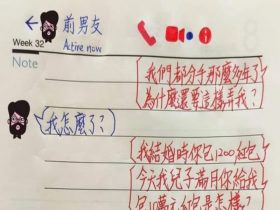 前男友
Active now
Week 32
Note
我們都分手那麼多年了
為什麼還要這樣弄我?
我怎麼了?
我結婚時你包1200紅包
今天我兒子滿月你給我
包10萬元紅包是怎樣?